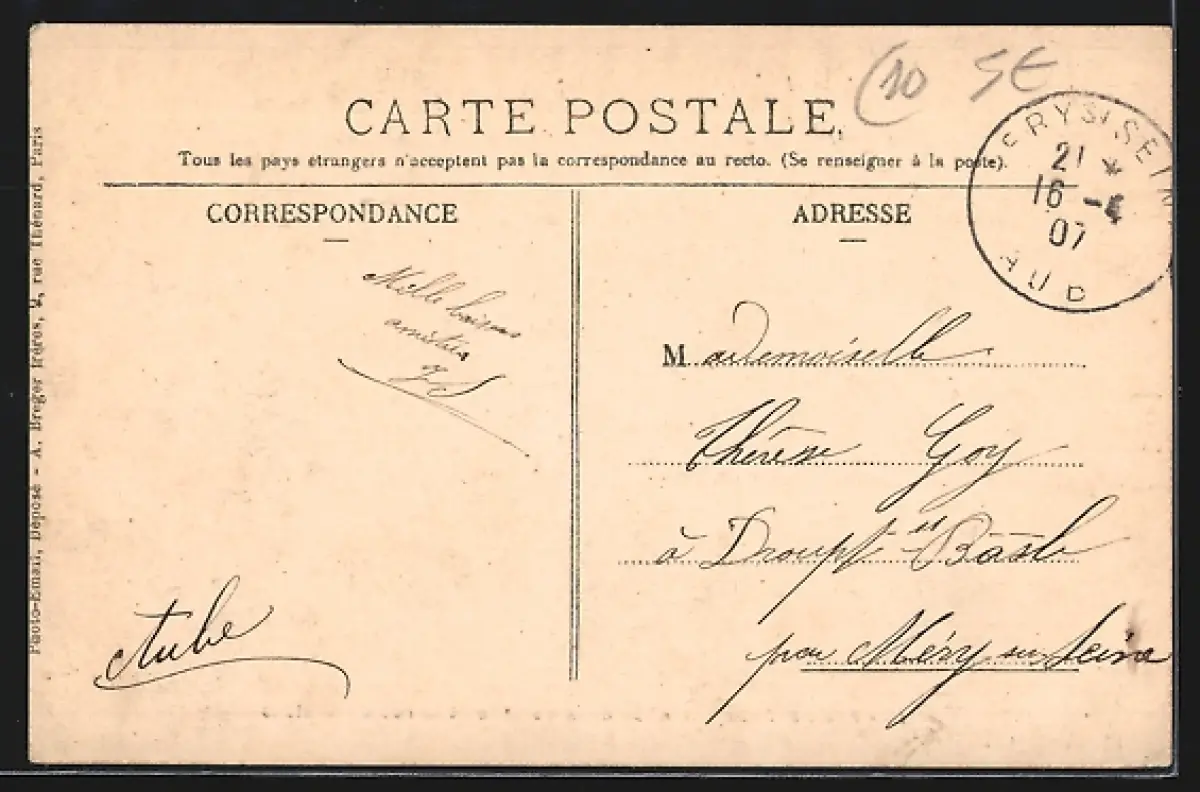 (10 5€
CARTE POSTALE.
Tous les pays étrangers n'acceptent pas la correspondance au recto. (Se renseigner à la poste).
CORRESPONDANCE
ADRESSE
ERY S/ SEIN
21 *
16 - 4
07
AUB
Mille baisers
amitiés
Mademoiselle
Thérèse Goy
à Droupt-St-Basle
par Méry sur Seine
Aube
Photo-Email, Déposé - A. Breger frères, 9, rue Thénard, Paris